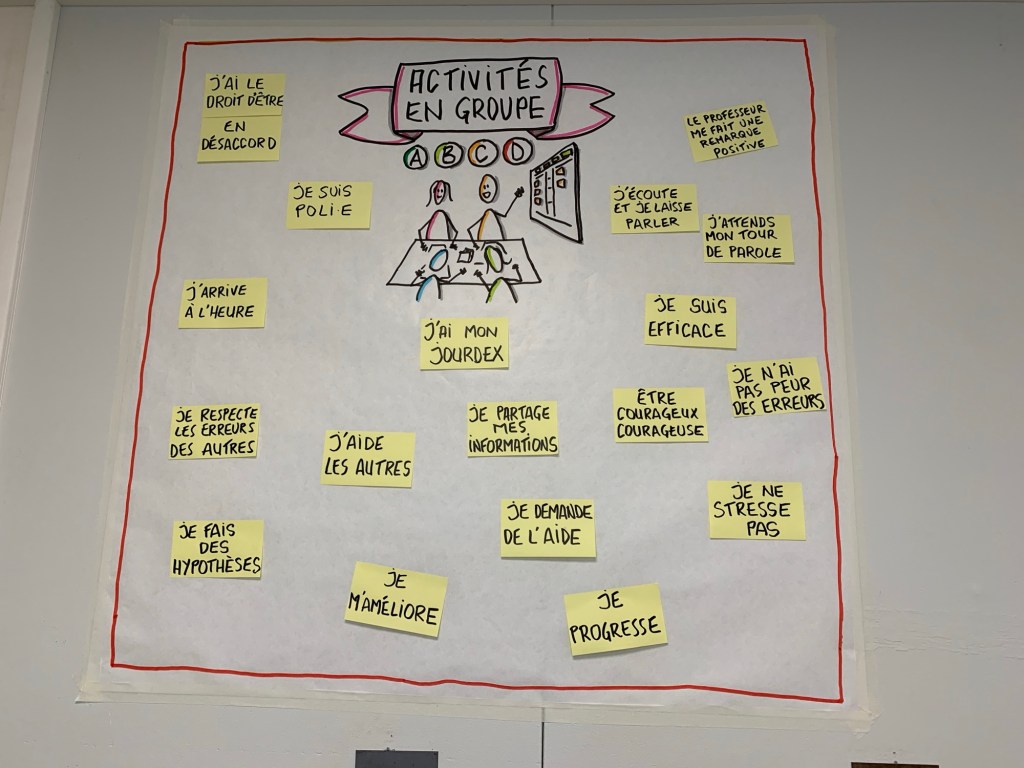 ACTIVITÉS
EN GROUPE
A B C D
J'AI LE
DROIT D'ÊTRE
EN
DÉSACCORD
LE PROFESSEUR
ME FAIT UNE
REMARQUE
POSITIVE
JE SUIS
POLI·E
J'ÉCOUTE
ET JE LAISSE
PARLER
J'ATTENDS
MON TOUR
DE PAROLE
J'ARRIVE
À L'HEURE
J'AI MON
JOURDEX
JE SUIS
EFFICACE
JE N'AI
PAS PEUR
DES ERREURS
JE RESPECTE
LES ERREURS
DES AUTRES
J'AIDE
LES AUTRES
JE PARTAGE
MES
INFORMATIONS
ÊTRE
COURAGEUX
COURAGEUSE
JE FAIS
DES
HYPOTHÈSES
JE DEMANDE
DE L'AIDE
JE NE
STRESSE
PAS
JE
M'AMÉLIORE
JE
PROGRESSE